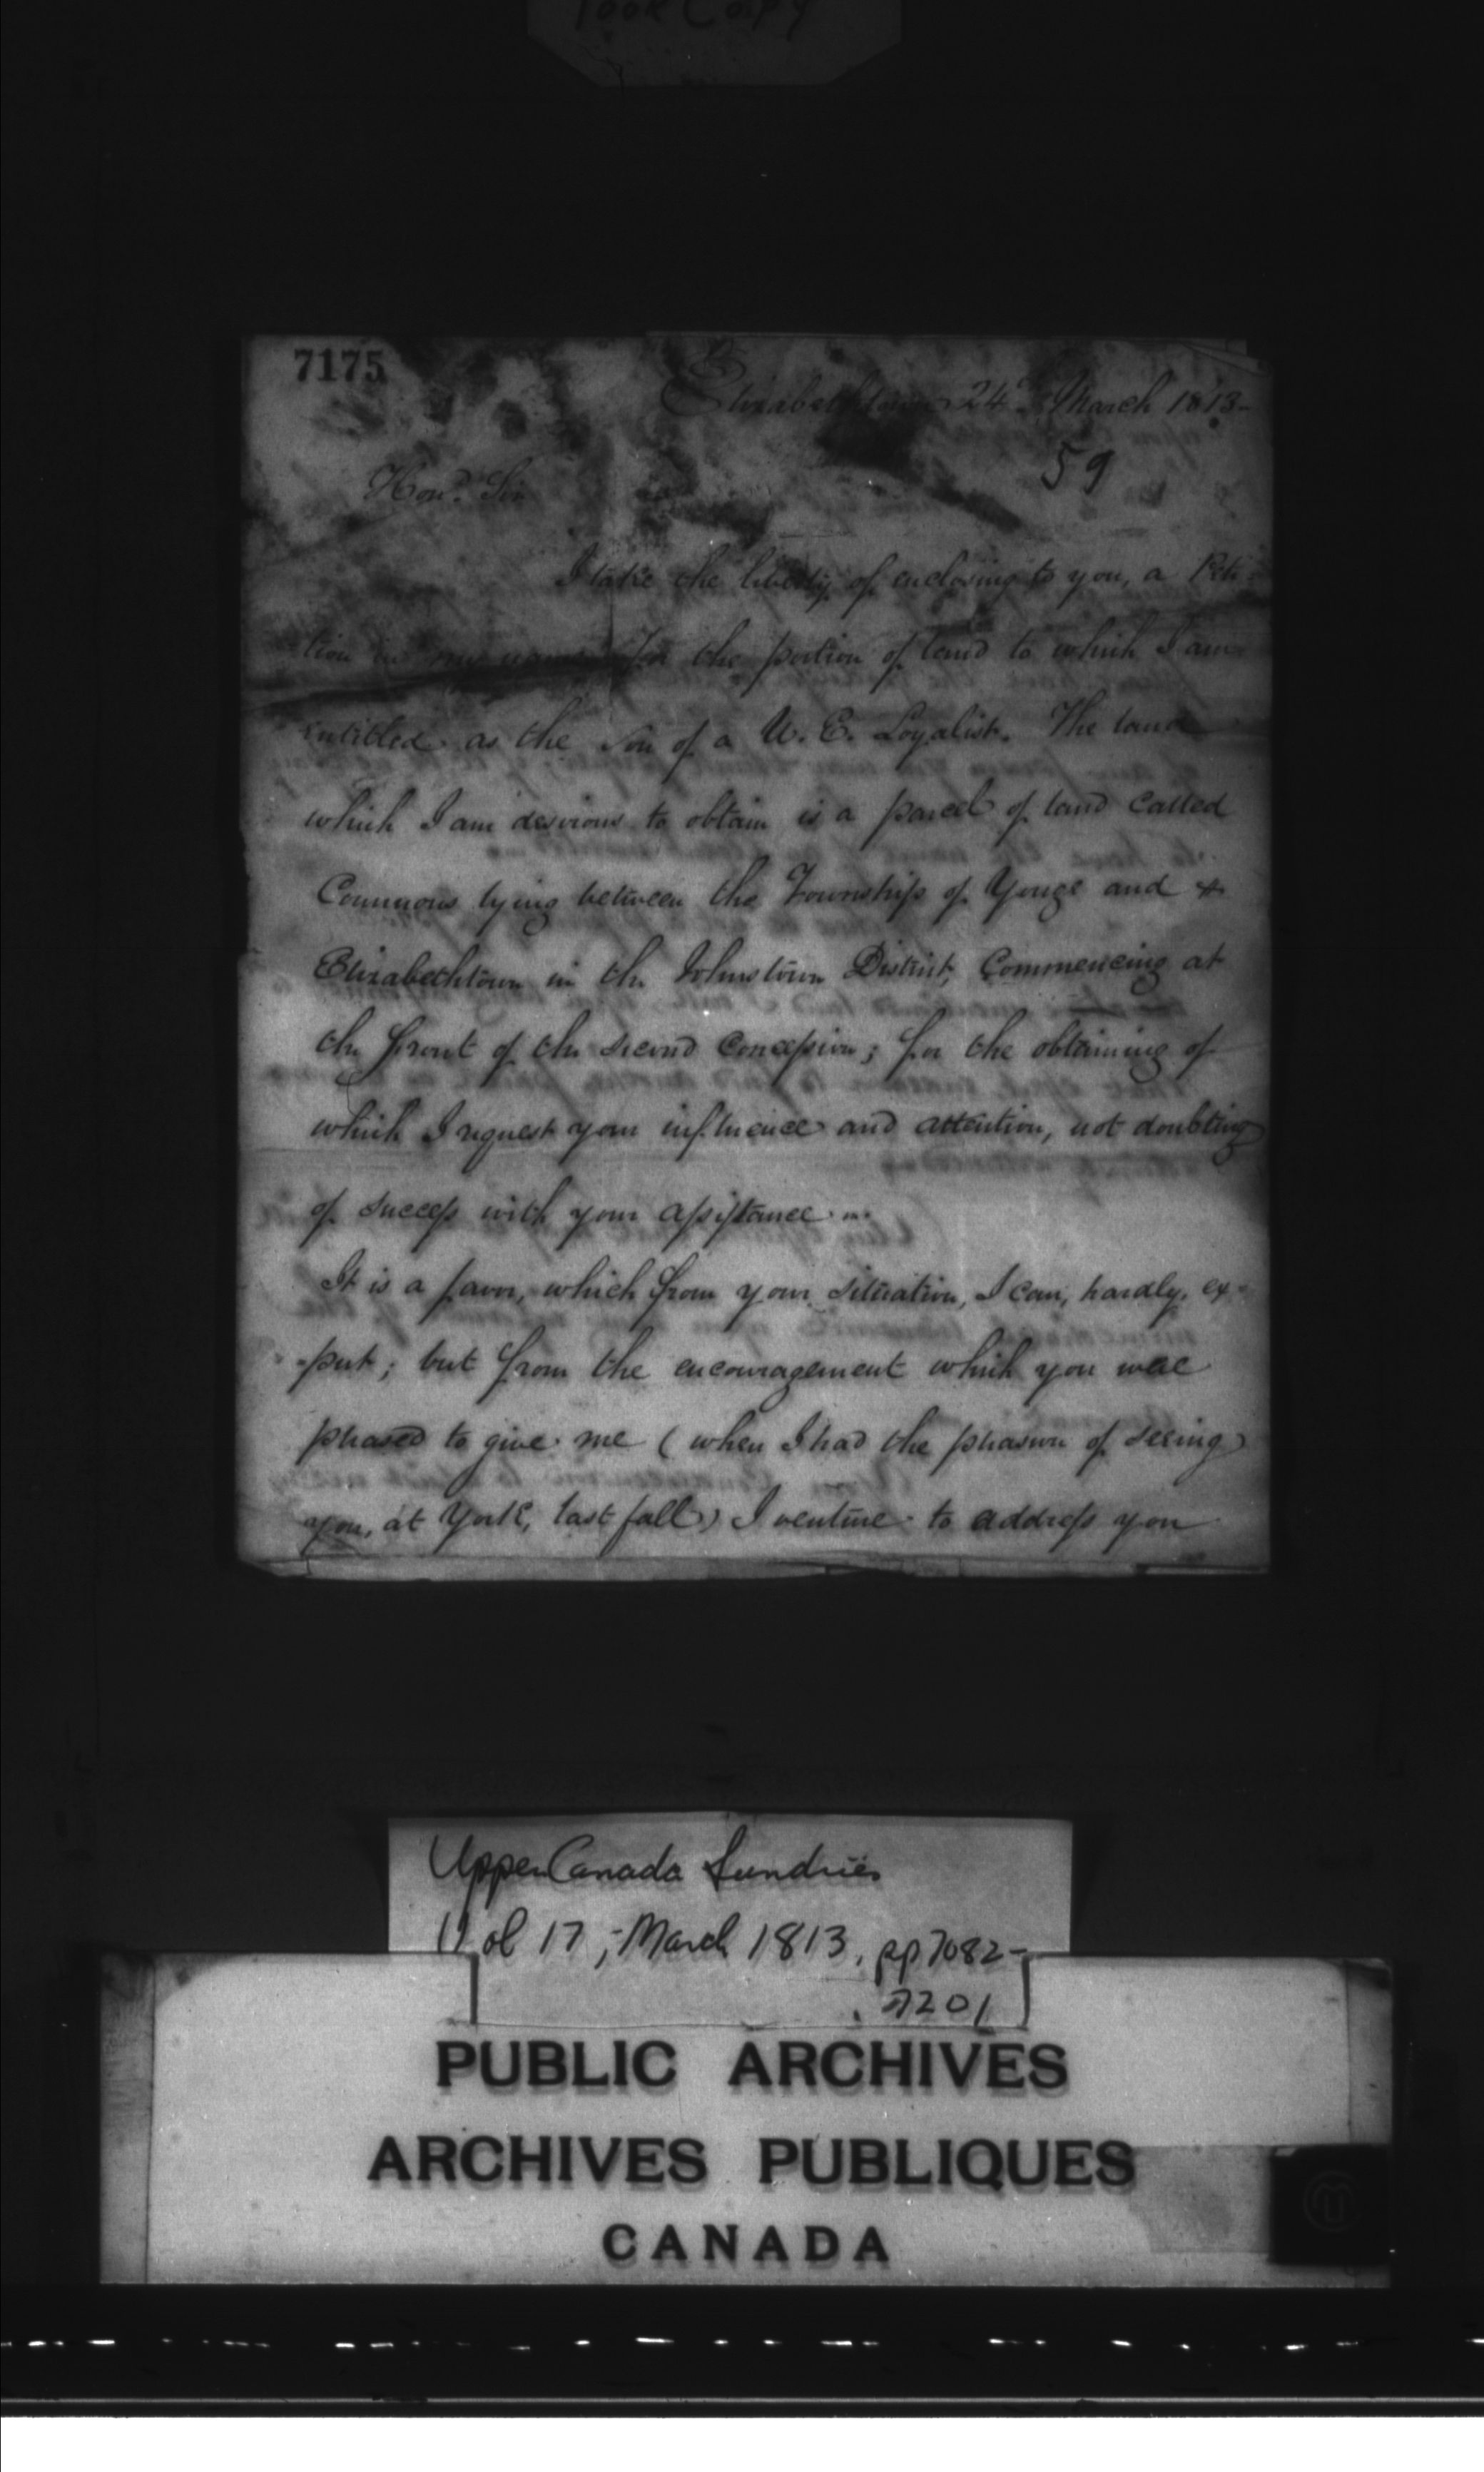 7175
Elizabethtown 24th March 1813-
59
Hond. Sir
I take the liberty of enclosing to you, a Peti-
tion in my name for the portion of land to which I am
intitled as the Son of a U. E. Loyalist. The land
which I am desirous to obtain is a parcel of land called
Commons lying between the Township of Yonge and
Elizabethtown in the Johnstown District, Commencing at
the front of the second Concession; for the obtaining of
which I request your influence and attention, not doubting
of success with your assistance...
It is a favor, which from your situation, I can, hardly, ex-
-pect; but from the encouragement which you were
pleased to give me (when I had the pleasure of seeing
you, at York, last fall) I venture to address you
Upper Canada Sundries
Vol 17, - March 1813, pp 7082-
7201
PUBLIC ARCHIVES
ARCHIVES PUBLIQUES
CANADA